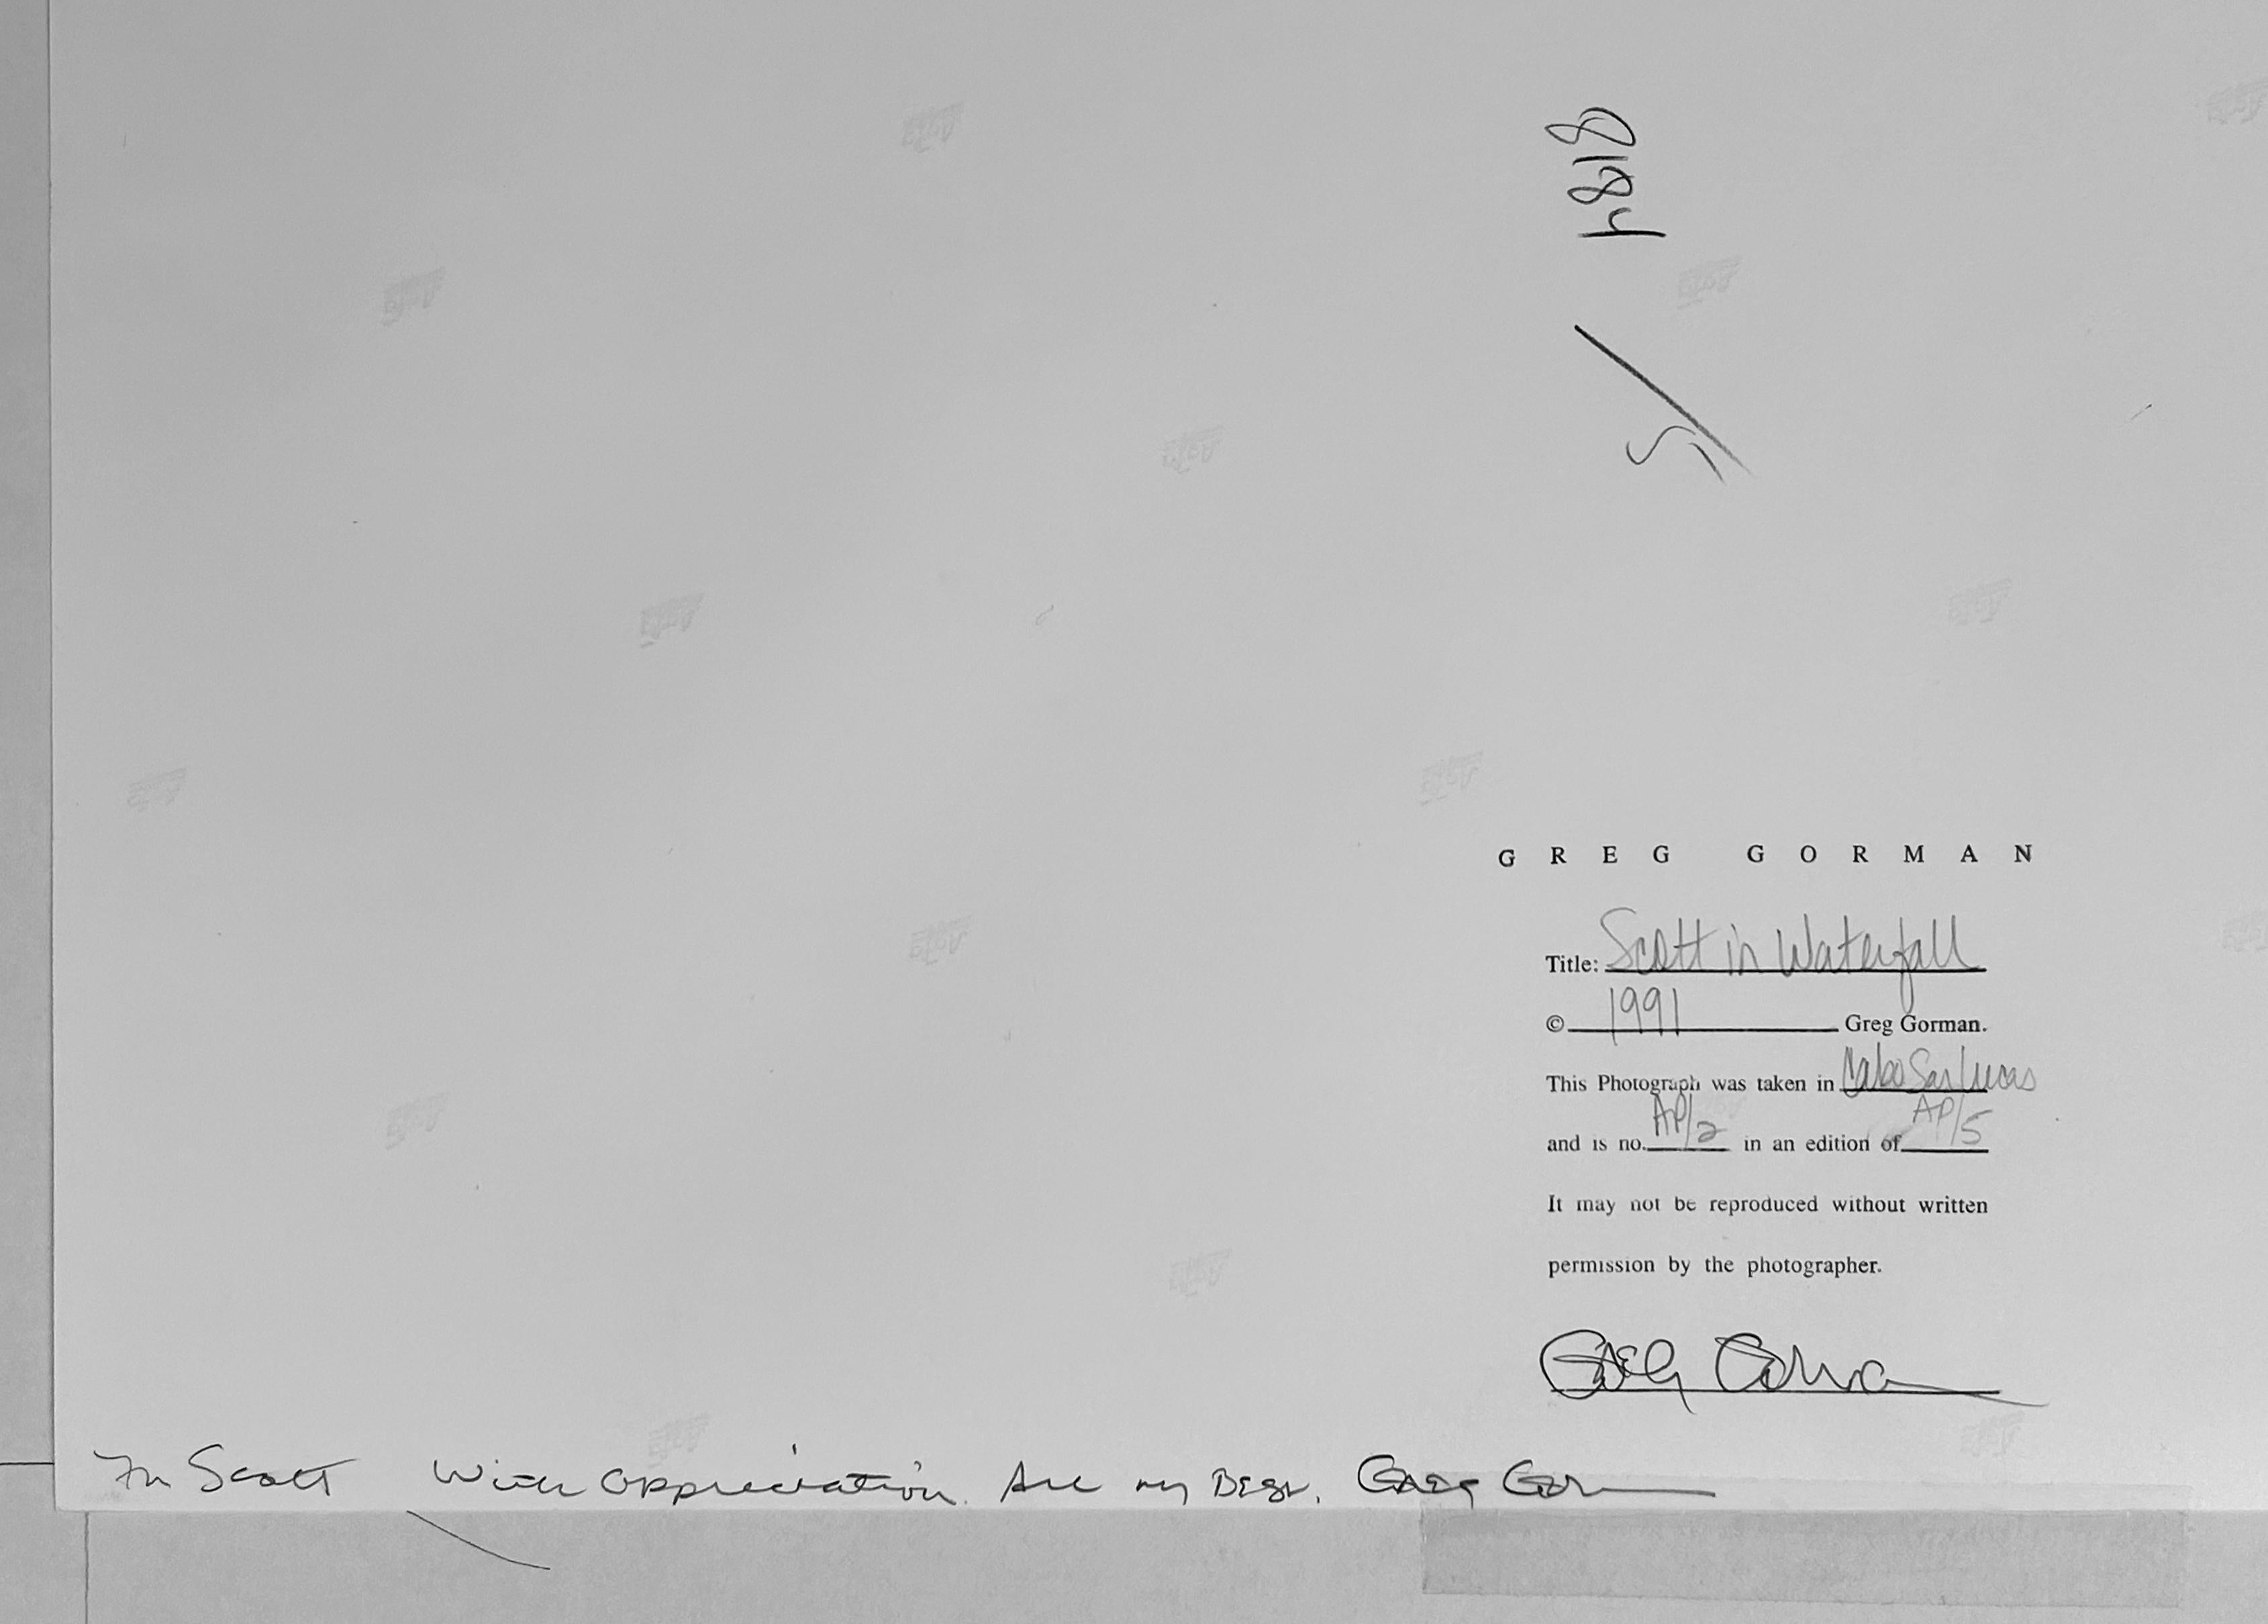 8184
GREG GORMAN
Title: Scott in Waterfall
© 1991 Greg Gorman.
This Photograph was taken in Cabo San Lucas
and is no. AP/2 in an edition of AP/5
It may not be reproduced without written
permission by the photographer.
Greg Gorman
For Scott With appreciation. All my Best, Greg Gorman